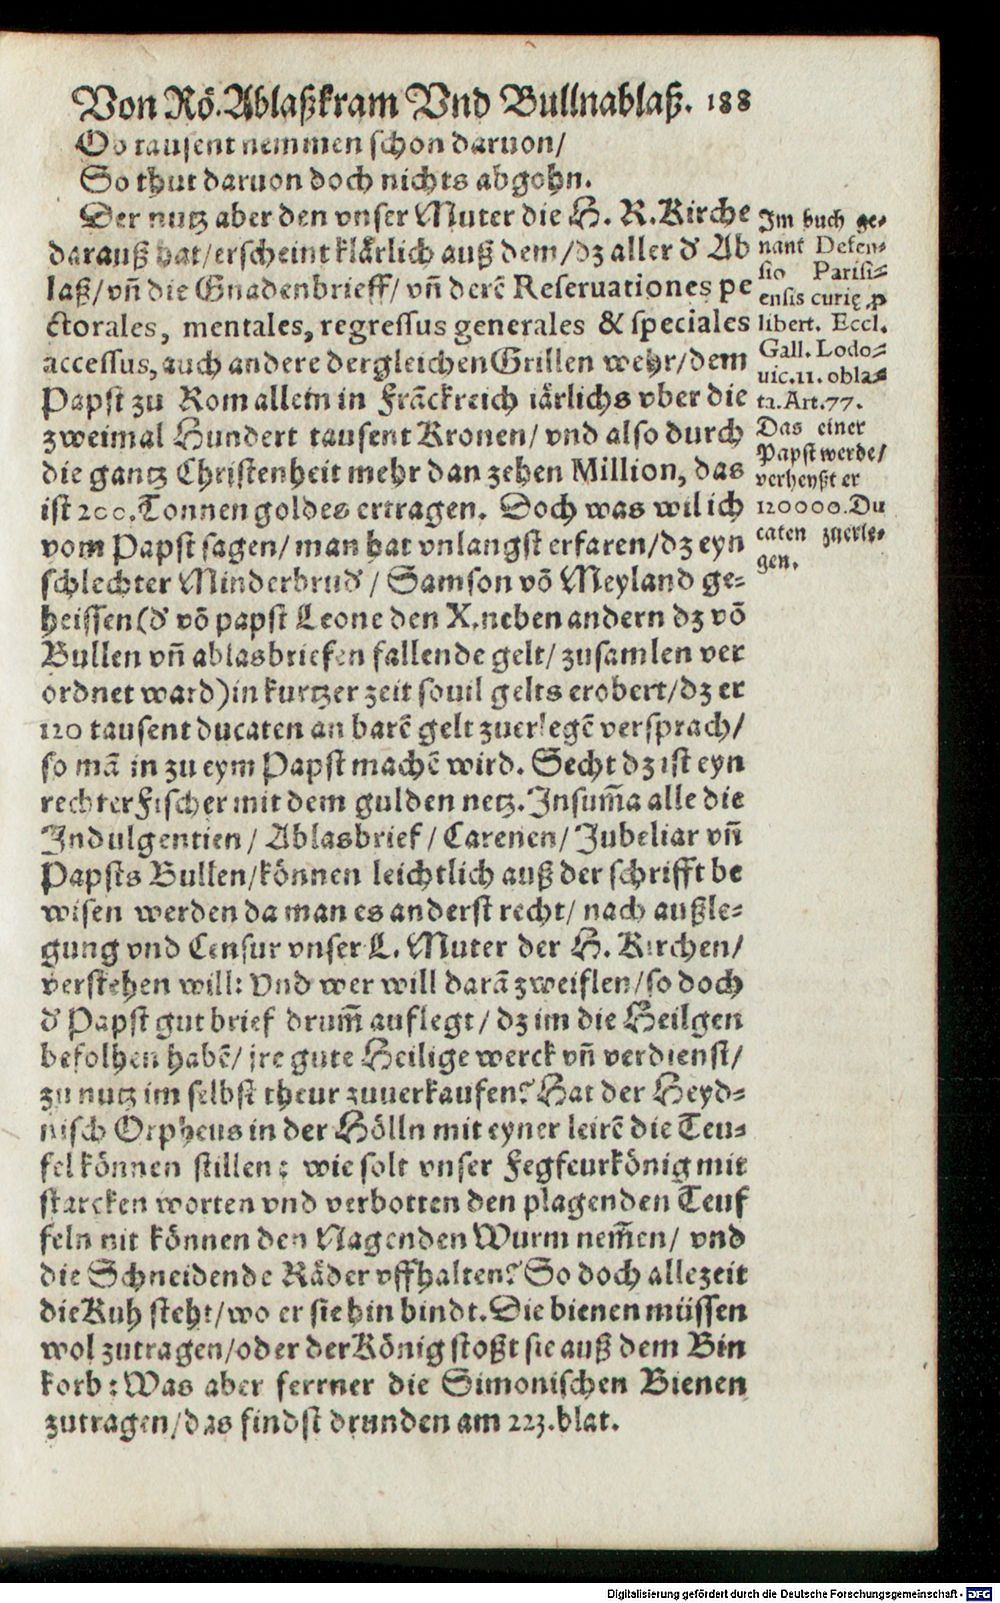 Von Rö. Ablaßkram Vnd Bullnablaß. 188
Ob tausent nemmen schon daruon/
So thut daruon doch nichts abgohn.
Der nutz aber den vnser Muter die H. R. Kirche
darauß hat/erscheint klärlich auß dem/dz aller d' Ab
laß/vñ die Gnadenbrieff/vñ derẽ Reseruationes pe
ctorales, mentales, regressus generales & speciales
accessus, auch andere dergleichen Grillen wehr/dem
Papst zu Rom allein in Frãckreich iärlichs vber die
zweimal Hundert tausent Kronen/ vnd also durch
die gantz Christenheit mehr dan zehen Million, das
ist 200. Tonnen goldes ertragen. Doch was wil ich
vom Papst sagen/man hat vnlangst erfaren/dz eyn
schlechter Minderbrud'/ Samson võ Meyland ge-
heissen (d' võ papst Leone den X. neben andern dz võ
Bullen vñ ablasbriefen fallende gelt/zusamlen ver
ordnet ward) in kurtzer zeit souil gelts erobert/dz er
120 tausent ducaten an barẽ gelt zuerlegẽ versprach/
so mã in zu eym Papst machẽ wird. Secht dz ist eyn
rechter Fischer mit dem gulden netz. Insum̃a alle die
Indulgentien/ Ablasbrief/ Carenen/ Jubeliar vñ
Papsts Bullen/können leichtlich auß der schrifft be
wisen werden da man es anderst recht/ nach außle-
gung vnd Censur vnser L. Muter der H. Kirchen/
verstehen will: Vnd wer will darã zweiflen/so doch
d' Papst gut brief drum̃ auflegt/dz im die Heilgen
befolhen habẽ/ jre gute Heilige werck vñ verdienst/
zu nutz im selbst theur zuuerkaufen? Hat der Heyd-
nisch Orpheus in der Hölln mit eyner leirẽ die Teu-
fel können stillen: wie solt vnser Fegfeurkönig mit
starcken worten vnd verbotten den plagenden Teuf
feln nit können den Nagenden Wurm nem̃en/ vnd
die Schneidende Räder vffhalten? So doch allezeit
die Kuh steht/wo er sie hin bindt. Die bienen müssen
wol zutragen/oder der König stoßt sie auß dem Bin
korb: Was aber ferrner die Simonischen Bienen
zutragen/das findst drunden am 223. blat.
Im buch ge-
nant Defen-
sio Parisi-
ensis curię ꝓ
libert. Eccl.
Gall. Lodo-
uic. 11. obla-
ta. Art. 77.
Das einer
Papst werde/
verheyßt er
120000. Du
caten zuerle-
gen.
Digitalisierung gefördert durch die Deutsche Forschungsgemeinschaft - DFG